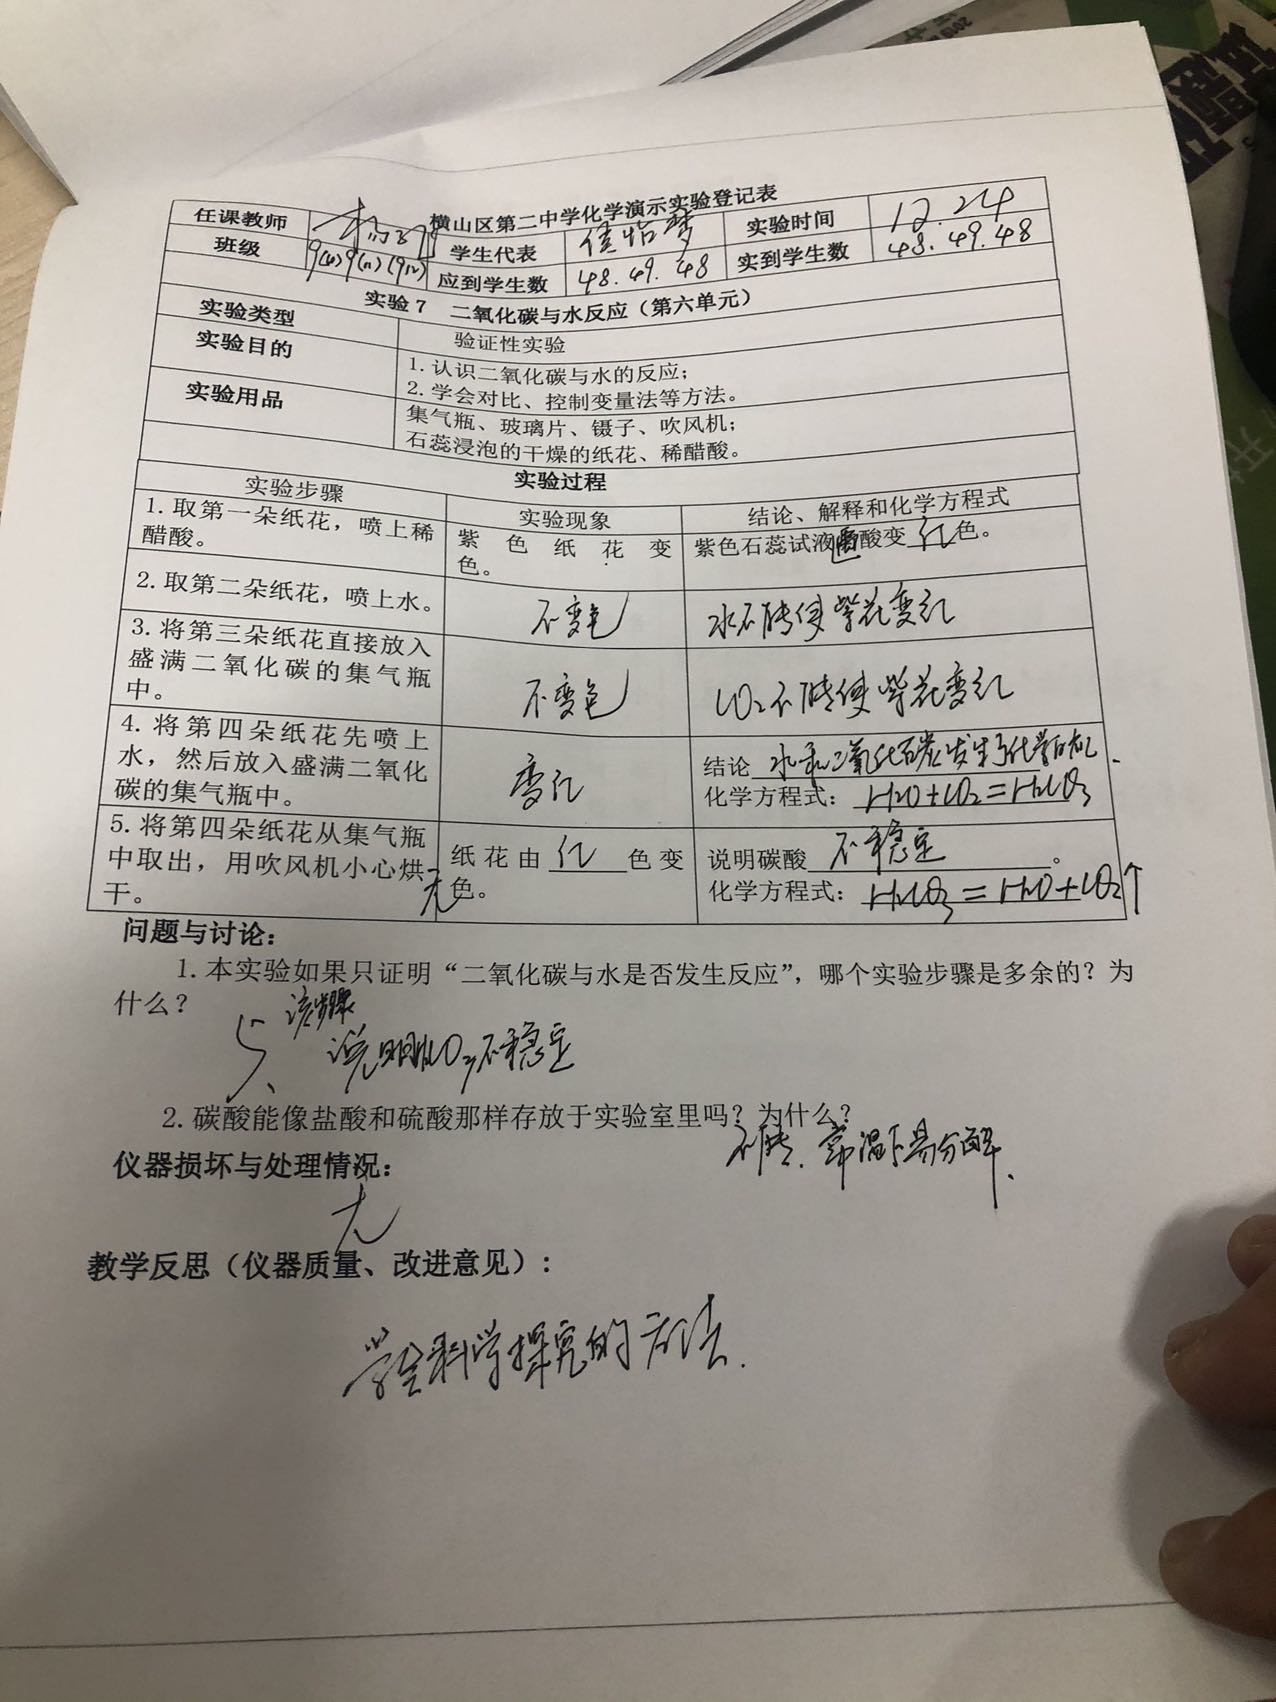 横山区第二中学化学演示实验登记表
任课教师 学生代表 实验时间 12.24
班级 应到学生数 48.49.48 实到学生数 48.49.48
实验7 二氧化碳与水反应（第六单元）
实验类型 验证性实验
实验目的 1.认识二氧化碳与水的反应；
2.学会对比、控制变量法等方法。
实验用品 集气瓶、玻璃片、镊子、吹风机；
石蕊浸泡的干燥的纸花、稀醋酸。
实验过程
实验步骤 实验现象 结论、解释和化学方程式
1.取第一朵纸花，喷上稀
醋酸。
紫色纸花变
色。
紫色石蕊试液遇酸变 红 色。
2.取第二朵纸花，喷上水。 不变色 水不能使紫花变红
3.将第三朵纸花直接放入
盛满二氧化碳的集气瓶
中。
不变色 CO₂不能使紫花变红
4.将第四朵纸花先喷上
水，然后放入盛满二氧化
碳的集气瓶中。
变红
结论 水和二氧化碳发生了化学反应.
化学方程式： H₂O+CO₂=H₂CO₃
5.将第四朵纸花从集气瓶
中取出，用吹风机小心烘
干。
纸花由 红 色变
无 色。
说明碳酸 不稳定 。
化学方程式： H₂CO₃=H₂O+CO₂↑
问题与讨论：
1.本实验如果只证明“二氧化碳与水是否发生反应”，哪个实验步骤是多余的？为
什么？
5、该步骤
说明H₂CO₃不稳定
2.碳酸能像盐酸和硫酸那样存放于实验室里吗？为什么？
不能.常温下易分解.
仪器损坏与处理情况：
无
教学反思（仪器质量、改进意见）:
学会科学探究的方法.